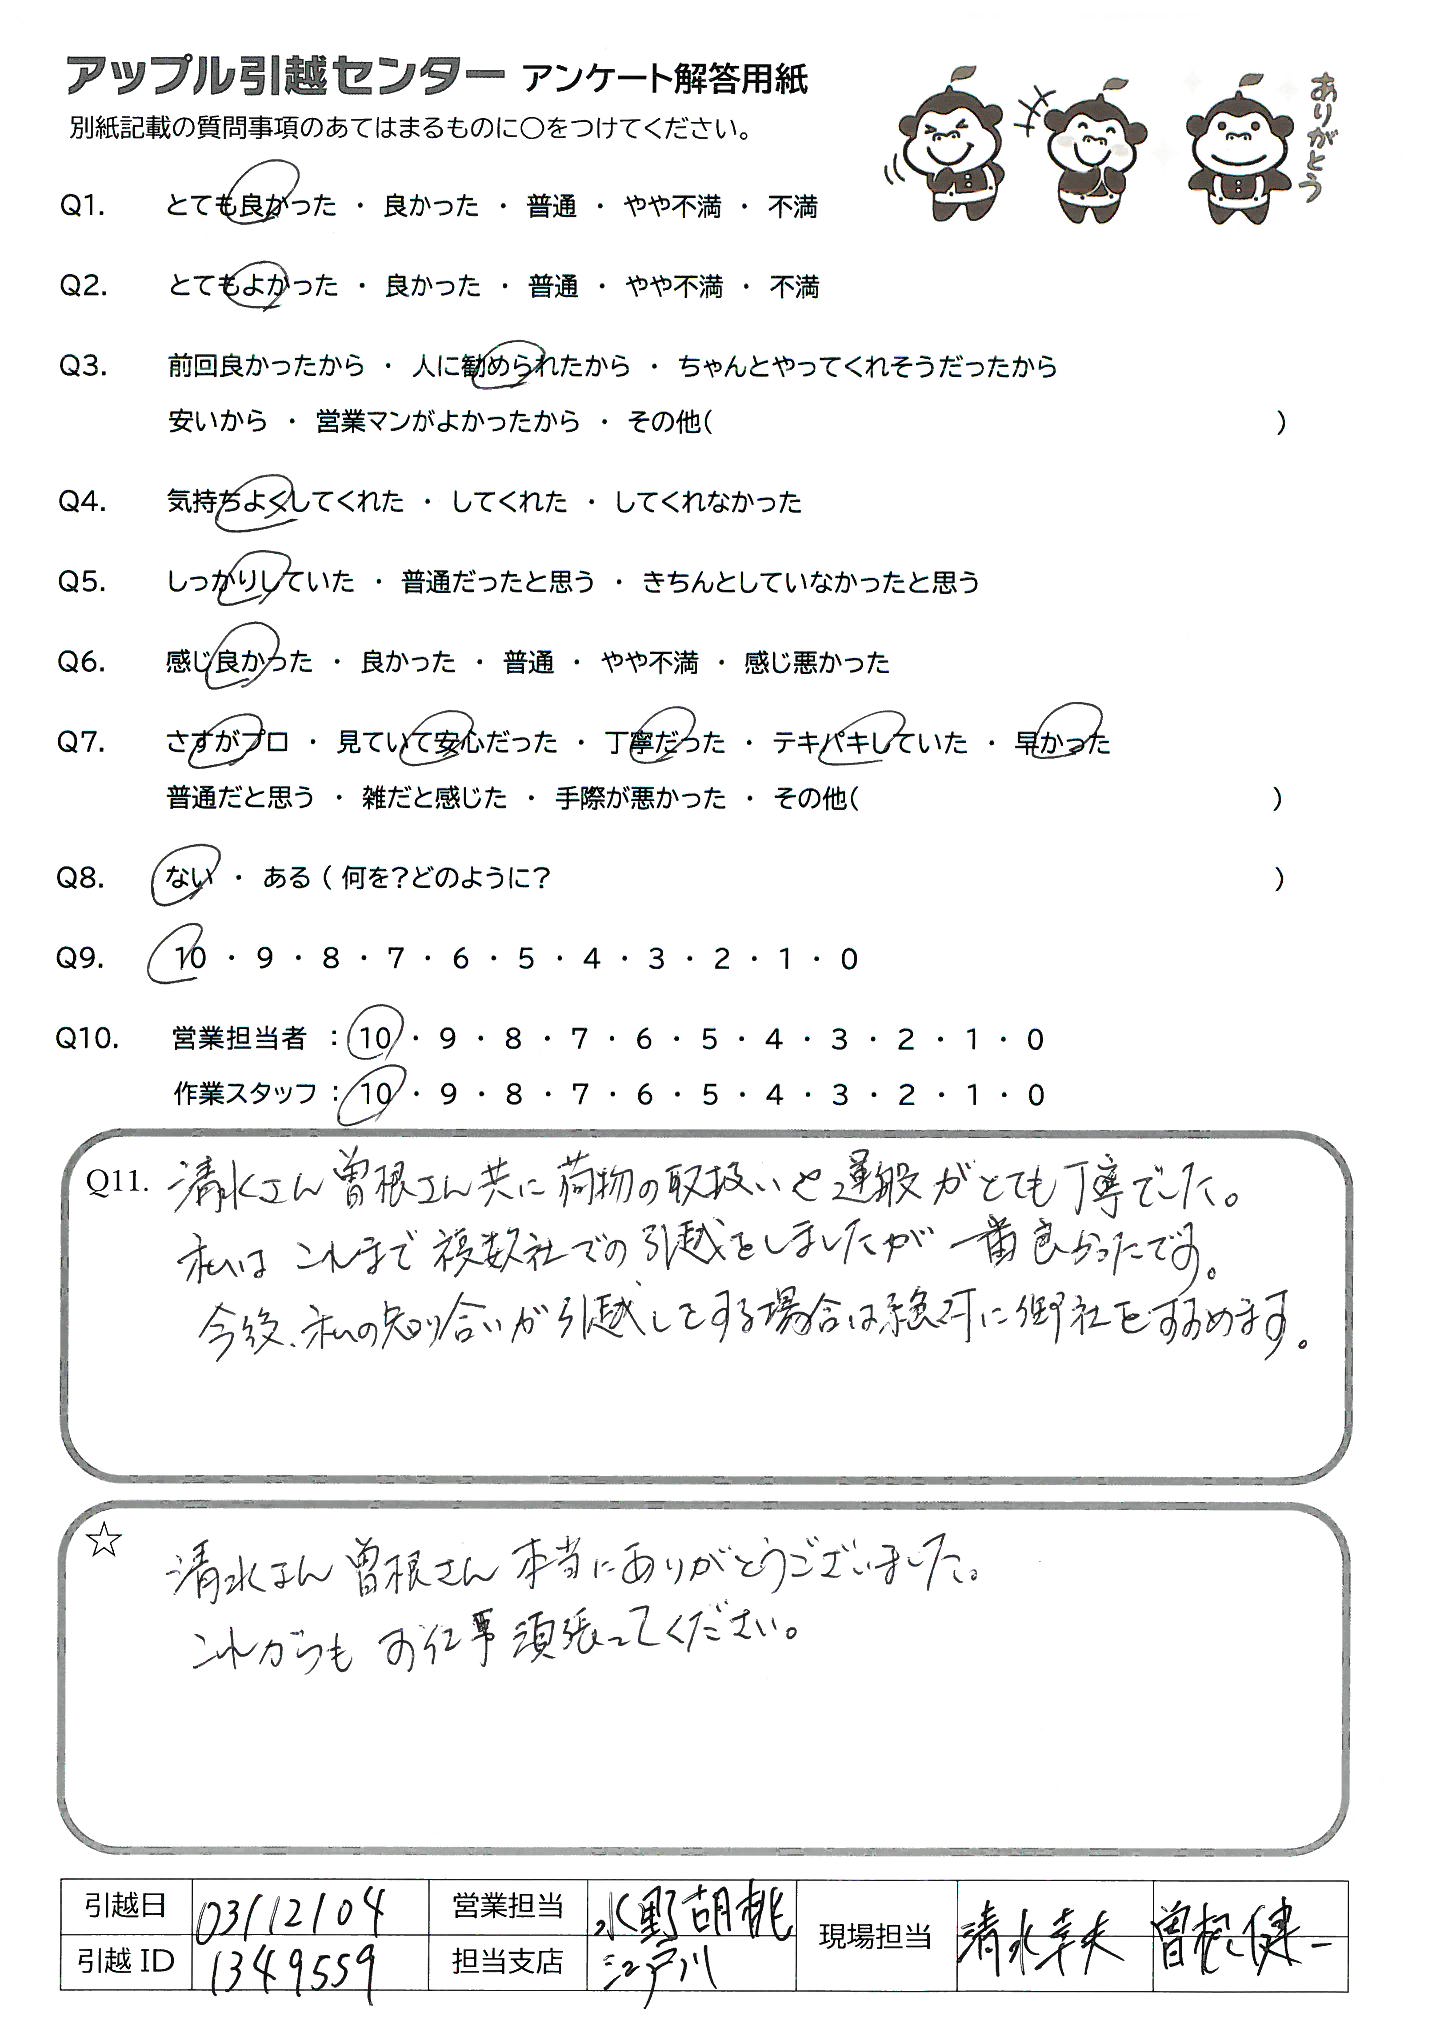 アップル引越センター アンケート解答用紙
ありがとう
別紙記載の質問事項のあてはまるものに○をつけてください。
Q1. とても良かった ・ 良かった ・ 普通 ・ やや不満 ・ 不満
Q2. とてもよかった ・ 良かった ・ 普通 ・ やや不満 ・ 不満
Q3. 前回良かったから ・ 人に勧められたから ・ ちゃんとやってくれそうだったから
安いから ・ 営業マンがよかったから ・ その他( )
Q4. 気持ちよくしてくれた ・ してくれた ・ してくれなかった
Q5. しっかりしていた ・ 普通だったと思う ・ きちんとしていなかったと思う
Q6. 感じ良かった ・ 良かった ・ 普通 ・ やや不満 ・ 感じ悪かった
Q7. さすがプロ ・ 見ていて安心だった ・ 丁寧だった ・ テキパキしていた ・ 早かった
普通だと思う ・ 雑だと感じた ・ 手際が悪かった ・ その他( )
Q8. ない ・ ある ( 何を?どのように? )
Q9. 10 ・ 9 ・ 8 ・ 7 ・ 6 ・ 5 ・ 4 ・ 3 ・ 2 ・ 1 ・ 0
Q10. 営業担当者 : 10 ・ 9 ・ 8 ・ 7 ・ 6 ・ 5 ・ 4 ・ 3 ・ 2 ・ 1 ・ 0
作業スタッフ : 10 ・ 9 ・ 8 ・ 7 ・ 6 ・ 5 ・ 4 ・ 3 ・ 2 ・ 1 ・ 0
Q11. 清水さん曽根さん共に荷物の取扱いや運般がとても丁寧でした。
私は これまで複数社での引越をしましたが 一番良かったです。
今後、私の知り合いが引越しをする場合は絶対に御社をすすめます。
☆ 清水さん曽根さん本当にありがとうございました。
これからも お仕事頑張ってください。
引越日 03/12/04 営業担当 水野胡桃 現場担当 清水幸夫 曽根健一
引越 ID 1349559 担当支店 江戸川